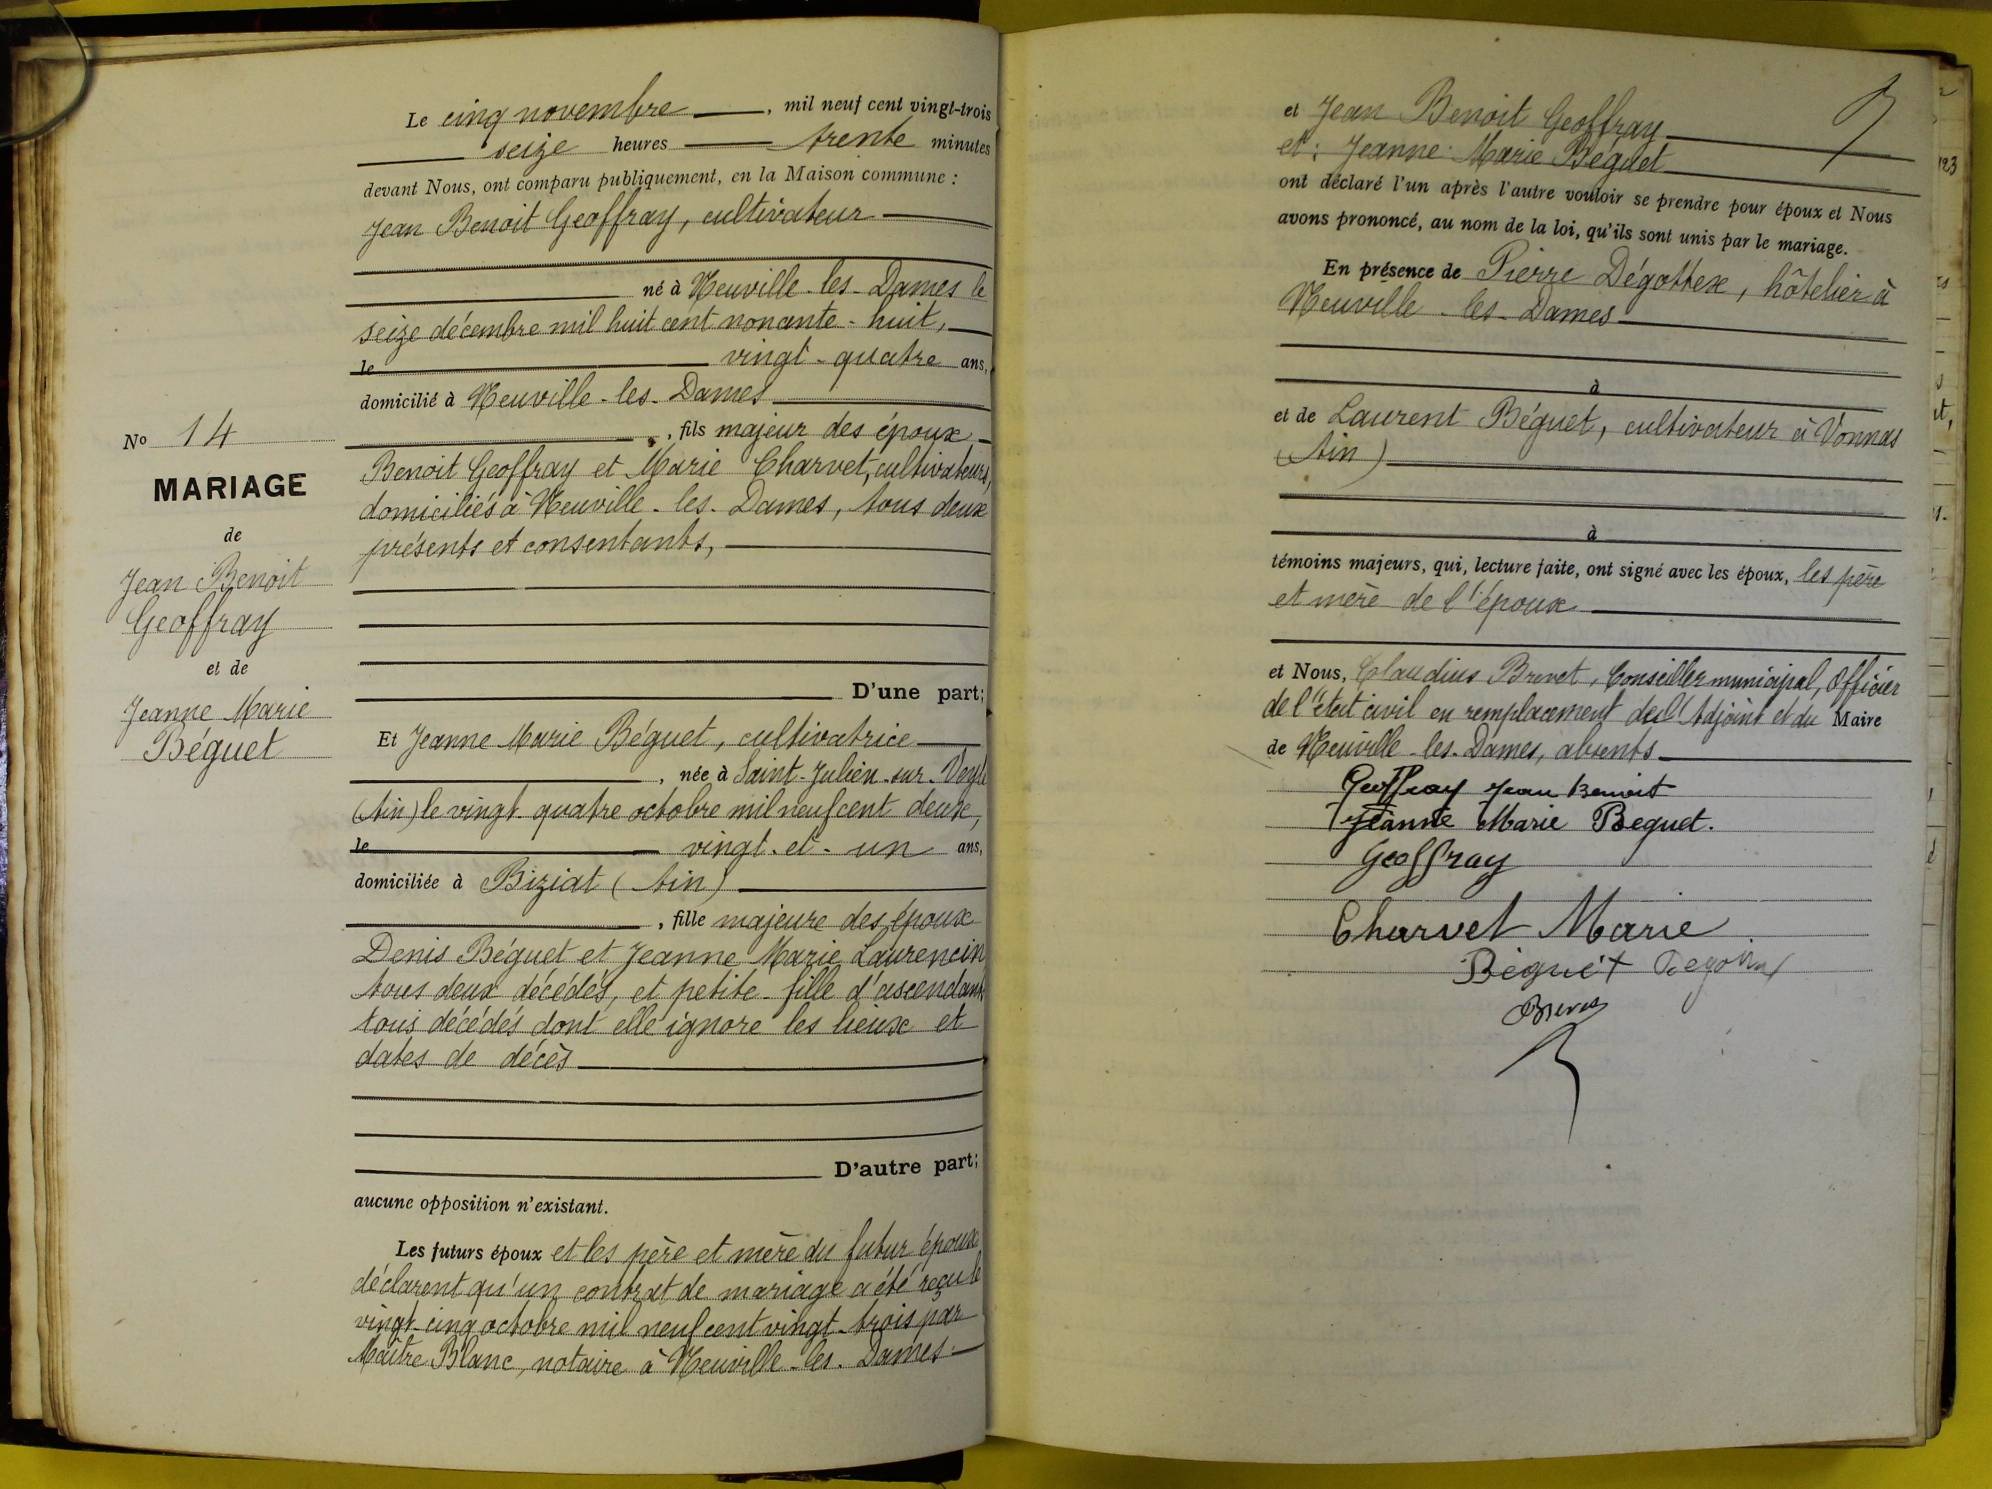 Le cinq novembre, mil neuf cent vingt-trois
seize heures trente minutes
devant Nous, ont comparu publiquement, en la Maison commune :
Jean Benoit Geoffray, cultivateur
né à Neuville-les-Dames le
seize décembre mil huit cent nonante-huit,
le vingt-quatre ans,
domicilié à Neuville-les-Dames
, fils majeur des époux
Benoit Geoffray et Marie Charvet, cultivateurs,
domiciliés à Neuville-les-Dames, tous deux
présents et consentants,
D'une part;
No 14
MARIAGE
de
Jean Benoit
Geoffray
et de
Jeanne Marie
Béguet
Et Jeanne Marie Béguet, cultivatrice
, née à Saint-Julien-sur-Veyle
(Ain) le vingt-quatre octobre mil neuf cent deux,
le vingt-et-un ans,
domiciliée à Biziat (Ain)
, fille majeure des époux
Denis Béguet et Jeanne Marie Laurencin
tous deux décédés, et petite-fille d'ascendants
tous décédés dont elle ignore les lieux et
dates de décès
D'autre part;
aucune opposition n'existant.
Les futurs époux et les père et mère du futur époux
déclarent qu'un contrat de mariage a été reçu le
vingt-cinq octobre mil neuf cent vingt-trois par
Maître Blanc, notaire à Neuville-les-Dames.
et Jean Benoit Geoffray
et : Jeanne Marie Béguet
ont déclaré l'un après l'autre vouloir se prendre pour époux et Nous
avons prononcé, au nom de la loi, qu'ils sont unis par le mariage.
En présence de Pierre Dégottex, hôtelier à
Neuville-les-Dames
à
et de Laurent Béguet, cultivateur à Vonnas
(Ain)
à
témoins majeurs, qui, lecture faite, ont signé avec les époux, les père
et mère de l'époux
et Nous, Claudius Brevet, Conseiller municipal, Officier
de l'état civil en remplacement de l'Adjoint et du Maire
de Neuville-les-Dames, absents
Geoffray Jean Benoit
Jeanne Marie Beguet.
Geoffray
Charvet Marie
Béguet